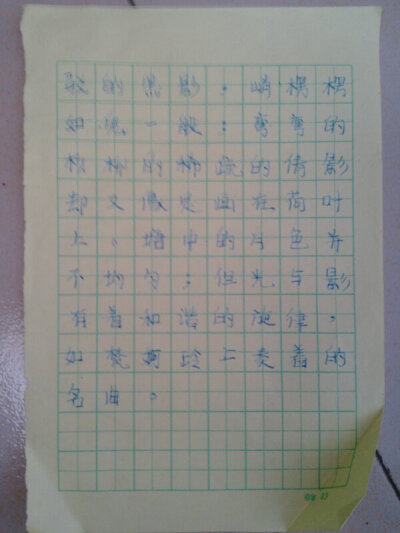 驳的黑影，峭楞楞
如鬼一般；弯弯的
杨柳的稀疏的倩影
却又像是画在荷叶
上。塘中的月色并
不均匀；但光与影
有着和谐的旋律，
如梵婀玲上奏着的
名曲。